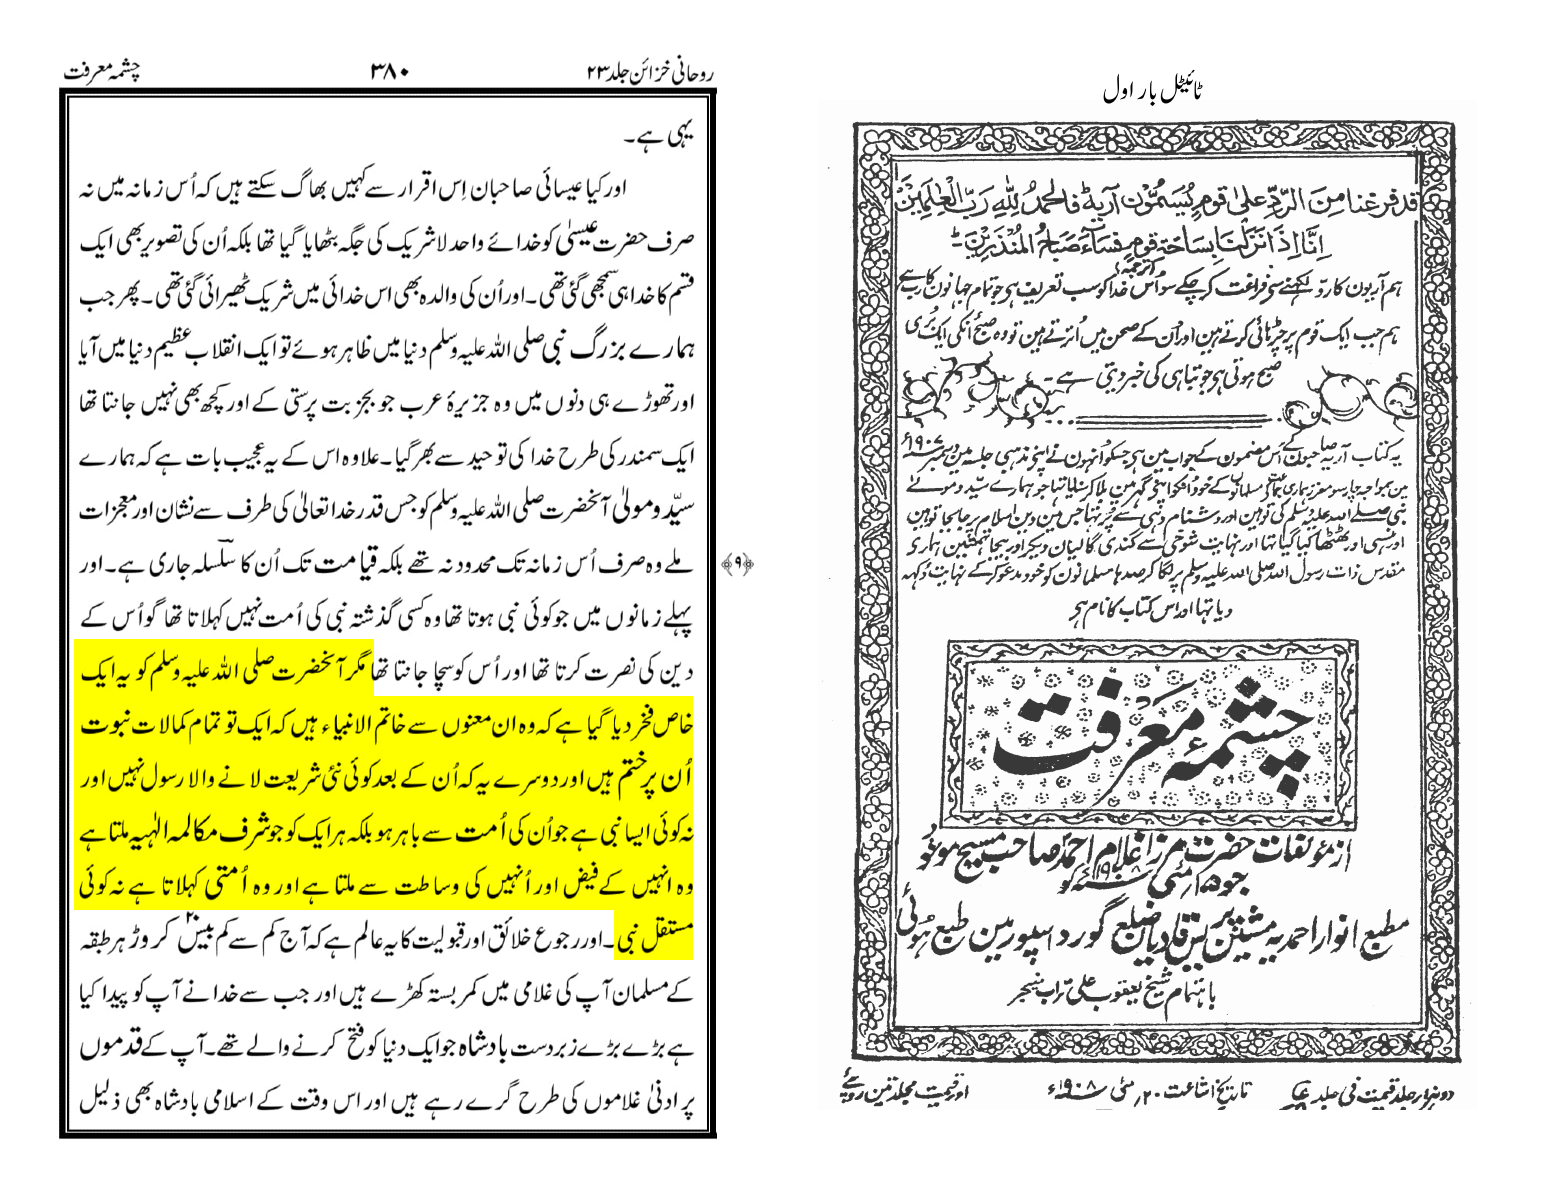 روحانی خزائن جلد۲۳
۳۸۰
چشمہ معرفت
یہی ہے۔
اور کیا عیسائی صاحبان اِس اقرار سے کہیں بھاگ سکتے ہیں کہ اُس زمانہ میں نہ
صرف حضرت عیسیٰ کو خدائے واحد لاشریک کی جگہ بٹھایا گیا تھا بلکہ اُن کی تصویر بھی ایک
قسم کا خدا ہی سمجھی گئی تھی۔ اور اُن کی والدہ بھی اس خدائی میں شریک ٹھیرائی گئی تھی۔ پھر جب
ہمارے بزرگ نبی صلی اللہ علیہ وسلم دنیا میں ظاہر ہوئے تو ایک انقلاب عظیم دنیا میں آیا
اور تھوڑے ہی دنوں میں وہ جزیرۂ عرب جو بجز بت پرستی کے اور کچھ بھی نہیں جانتا تھا
ایک سمندر کی طرح خدا کی توحید سے بھر گیا۔ علاوہ اس کے یہ عجیب بات ہے کہ ہمارے
سیّد و مولیٰ آنحضرت صلی اللہ علیہ وسلم کو جس قدر خدا تعالیٰ کی طرف سے نشان اور معجزات
ملے وہ صرف اُس زمانہ تک محدود نہ تھے بلکہ قیامت تک اُن کا سلسلہ جاری ہے۔ اور
﴿۹﴾
پہلے زمانوں میں جو کوئی نبی ہوتا تھا وہ کسی گذشتہ نبی کی اُمت نہیں کہلاتا تھا گو اُس کے
دین کی نصرت کرتا تھا اور اُس کو سچا جانتا تھا مگر آنحضرت صلی اللہ علیہ وسلم کو یہ ایک
خاص فخر دیا گیا ہے کہ وہ ان معنوں سے خاتم الانبیاء ہیں کہ ایک تو تمام کمالات نبوت
اُن پر ختم ہیں اور دوسرے یہ کہ اُن کے بعد کوئی نئی شریعت لانے والا رسول نہیں اور
نہ کوئی ایسا نبی ہے جو اُن کی اُمت سے باہر ہو بلکہ ہر ایک کو جو شرف مکالمہ الٰہیہ ملتا ہے
وہ انہیں کے فیض اور اُنہیں کی وساطت سے ملتا ہے اور وہ اُمتی کہلاتا ہے نہ کوئی
مستقل نبی۔ اور رجوع خلائق اور قبولیت کا یہ عالم ہے کہ آج کم سے کم بیس۲۰ کروڑ ہر طبقہ
کے مسلمان آپ کی غلامی میں کمر بستہ کھڑے ہیں اور جب سے خدا نے آپ کو پیدا کیا
ہے بڑے بڑے زبردست بادشاہ جو ایک دنیا کو فتح کرنے والے تھے۔ آپ کے قدموں
پر ادنیٰ غلاموں کی طرح گرے رہے ہیں اور اس وقت کے اسلامی بادشاہ بھی ذلیل
ٹائیٹل بار اول
قد فرغنا مِنَ الرَّدِّ علیٰ قومٍ یُسَمُّوْن آریۃ فالحمدُ لِلّٰہِ رَبِّ الْعٰلَمِیْنَ
اِنَّا اِذَا نَزَلْنَا بِسَاحَۃِ قَومٍ فَسَآءَ صَبَاحُ الْمُنْذَرِیْنَ۔
ترجمہ
ہم آریون کا ردّ لکھنے سے فراغت کر چکے سو اُس خدا کو سب تعریف ہی جو تمام جہانون کا رب ہے
ہم جب ایک قوم پر چڑہائی کرتے ہین اور اُن کے صحن میں اُترتے ہین تو وہ صبح اُنکی ایک بُری
صبح ہوتی ہی جو تباہی کی خبر دیتی ہے۔
یہ کتاب آریہ صاحبون کے اُس مضمون کے جواب مین ہی جسکو اُنہون نے اپنی مذہبی جلسہ مین دسمبر ۱۹۰۷ء
مین بمواجہ چار سو معزز ہماری جماعت کی مسلمانون کے خود انکو اپنے گھر مین بلا کر سُنایا تھا جو ہمارے سیّد و مولےٰ
نبی صلے اللہ علیہ وسلم کی توہین اور دشنام دہی سے پُر تہا جس مین دین اسلام پر جابجا توہین
اور ہنسی اور ٹھٹھا کیا گیا تہا اور نہایت شوخی سے گندی گالیان دیکر اور بیجا تہمتین ہماری
مقدس ذات رسول اللہ صلی اللہ علیہ وسلم پر لگا کر صدہا مسلمانون کو خود مدعو کر کے نہایت دُکہہ
دیا تہا اور اس کتاب کا نام ہی
چشمۂ معرفت
از مؤلفات حضرت مرزا غلام احمد صاحب مسیح موعود
جو ۱۵ مئی ۱۹۰۸ء کو
مطبع انوار احمدیہ مشین پریس قادیان ضلع گورداسپور مین طبع ہوئی
باہتمام شیخ یعقوب علی تراب منیجر
تاریخ اشاعت ۲۰؍ مئی ۱۹۰۸ء
اور قیمت مجلد تین روپے